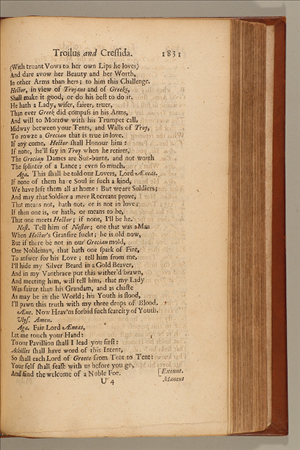 Troilus and Cressida. 1831
(With truant Vows to her own Lips he loves)
And dare avow her Beauty and her Worth,
In other Arms than hers; to him this Challenge.
Hector, in view of Trojans and of Greeks,
Shall make it good, or do his best to do it.
He hath a Lady, wiser, fairer, truer,
Than ever Greek did compass in his Arms,
And will to Morrow with his Trumpet call,
Midway between your Tents, and Walls of Troy,
To rowze a Grecian that is true in love.
If any come, Hector shall Honour him:
If none, he'll say in Troy when he retires,
The Grecian Dames are Sun-burnt, and not worth
The splinter of a Lance; even so much.
Aga. This shall be told our Lovers, Lord Æneas.
If none of them have Soul in such a kind,
We have left them all at home: But we are Soldiers;
And may that Soldier a meer Recreant prove,
That means not, hath not, or is not in love:
If then one is, or hath, or means to be,
That one meets Hector; if none, I'll be he.
Nest. Tell him of Nestor; one that was a Man
When Hector's Grandsire suckt; he is old now,
But if there be not in our Grecian mold,
One Nobleman, that hath one spark of Fire,
To answer for his Love; tell him from me,
I'll hide my Silver Beard in a Gold Beaver,
And in my Vantbrace put this wither'd brawn,
And meeting him, will tell him, that my Lady
Was fairer than his Grandam, and as chaste
As may be in the World; his Youth is flood,
I'll pawn this truth with my three drops of Blood.
Æne. Now Heav'ns forbid such scarcity of Youth.
Ulys. Amen.
Aga. Fair Lord Æneas,
Let me touch your Hand:
To our Pavillion shall I lead you first:
Achilles shall have word of this Intent,
So shall each Lord of Greece from Tent to Tent:
Your self shall feast with us before you go,
And find the welcome of a Noble Foe. [Exeunt.
U 4 Manent